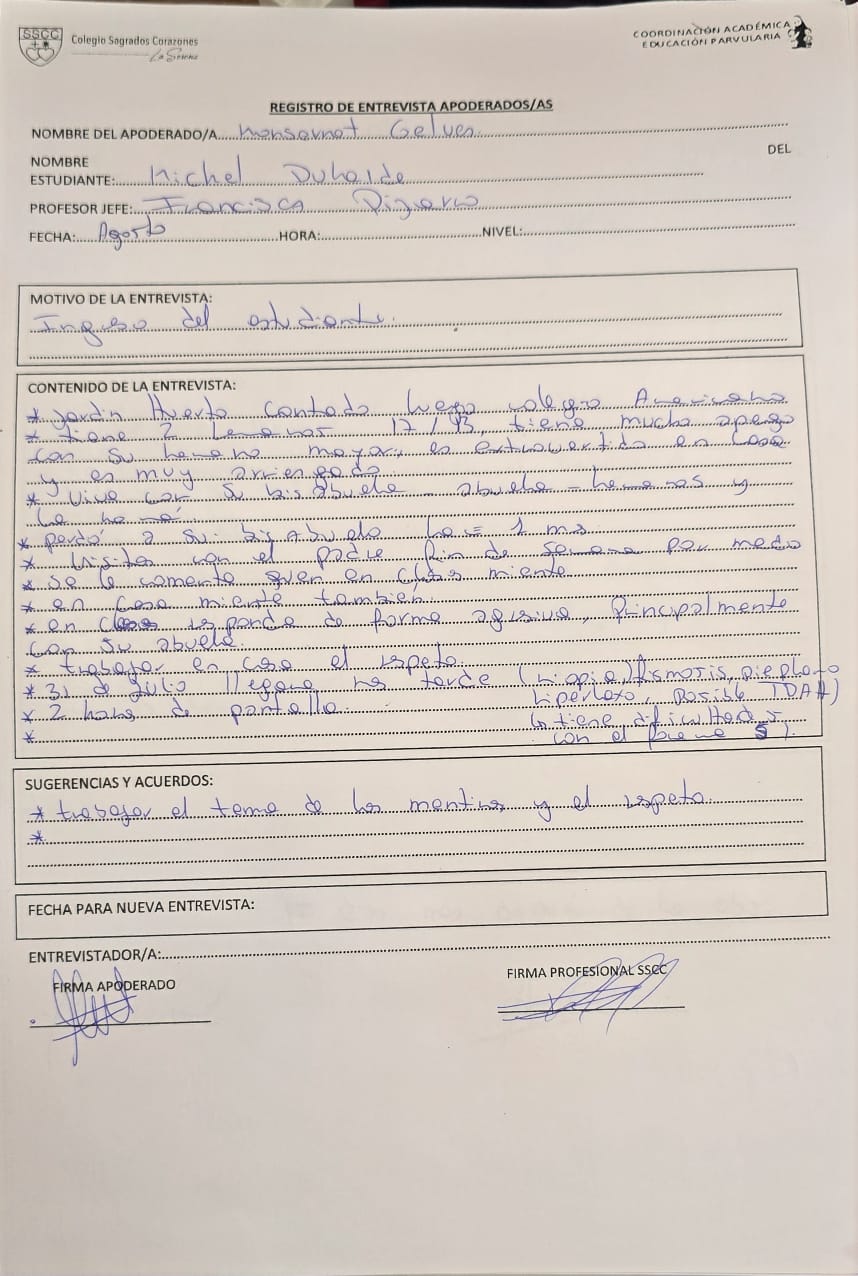 SSCC
Colegio Sagrados Corazones
La Serena
COORDINACIÓN ACADÉMICA
EDUCACIÓN PARVULARIA
REGISTRO DE ENTREVISTA APODERADOS/AS
NOMBRE DEL APODERADO/A.....Monserrat
NOMBRE DEL
ESTUDIANTE:.....Michel Duhalde
PROFESOR JEFE:.....Francisca Pizarro
FECHA:....Agosto....HORA:....NIVEL:....
MOTIVO DE LA ENTREVISTA:
Ingreso del estudiante.
CONTENIDO DE LA ENTREVISTA:
* Jardin Huerto luego colegio Americano
* tiene 2 hermanos 17 / 13, tiene mucho apego
con su hermano mayor, es extrovertido en casa
y es muy
* Vive con su bisabuela - abuela - hermanos y
la mamá
* perdió a su bisAbuelo hace 1 mes
* Visitas con el padre fin de semana por medio
* se le comenta que en clases miente
* en casa miente tambien
* en clases responde de forma agresiva, principalmente
con su abuela.
* trabajar en casa el respeto.
* 31 de Julio llegara mas tarde (miopia, pie plato
* 2 horas de pantalla hiperlaxo, posible TDAH)
* tiene dificultades
con el
SUGERENCIAS Y ACUERDOS:
* trabajar el tema de las mentiras y el respeto.
*
FECHA PARA NUEVA ENTREVISTA:
ENTREVISTADOR/A:
FIRMA APODERADO
FIRMA PROFESIONAL SSCC